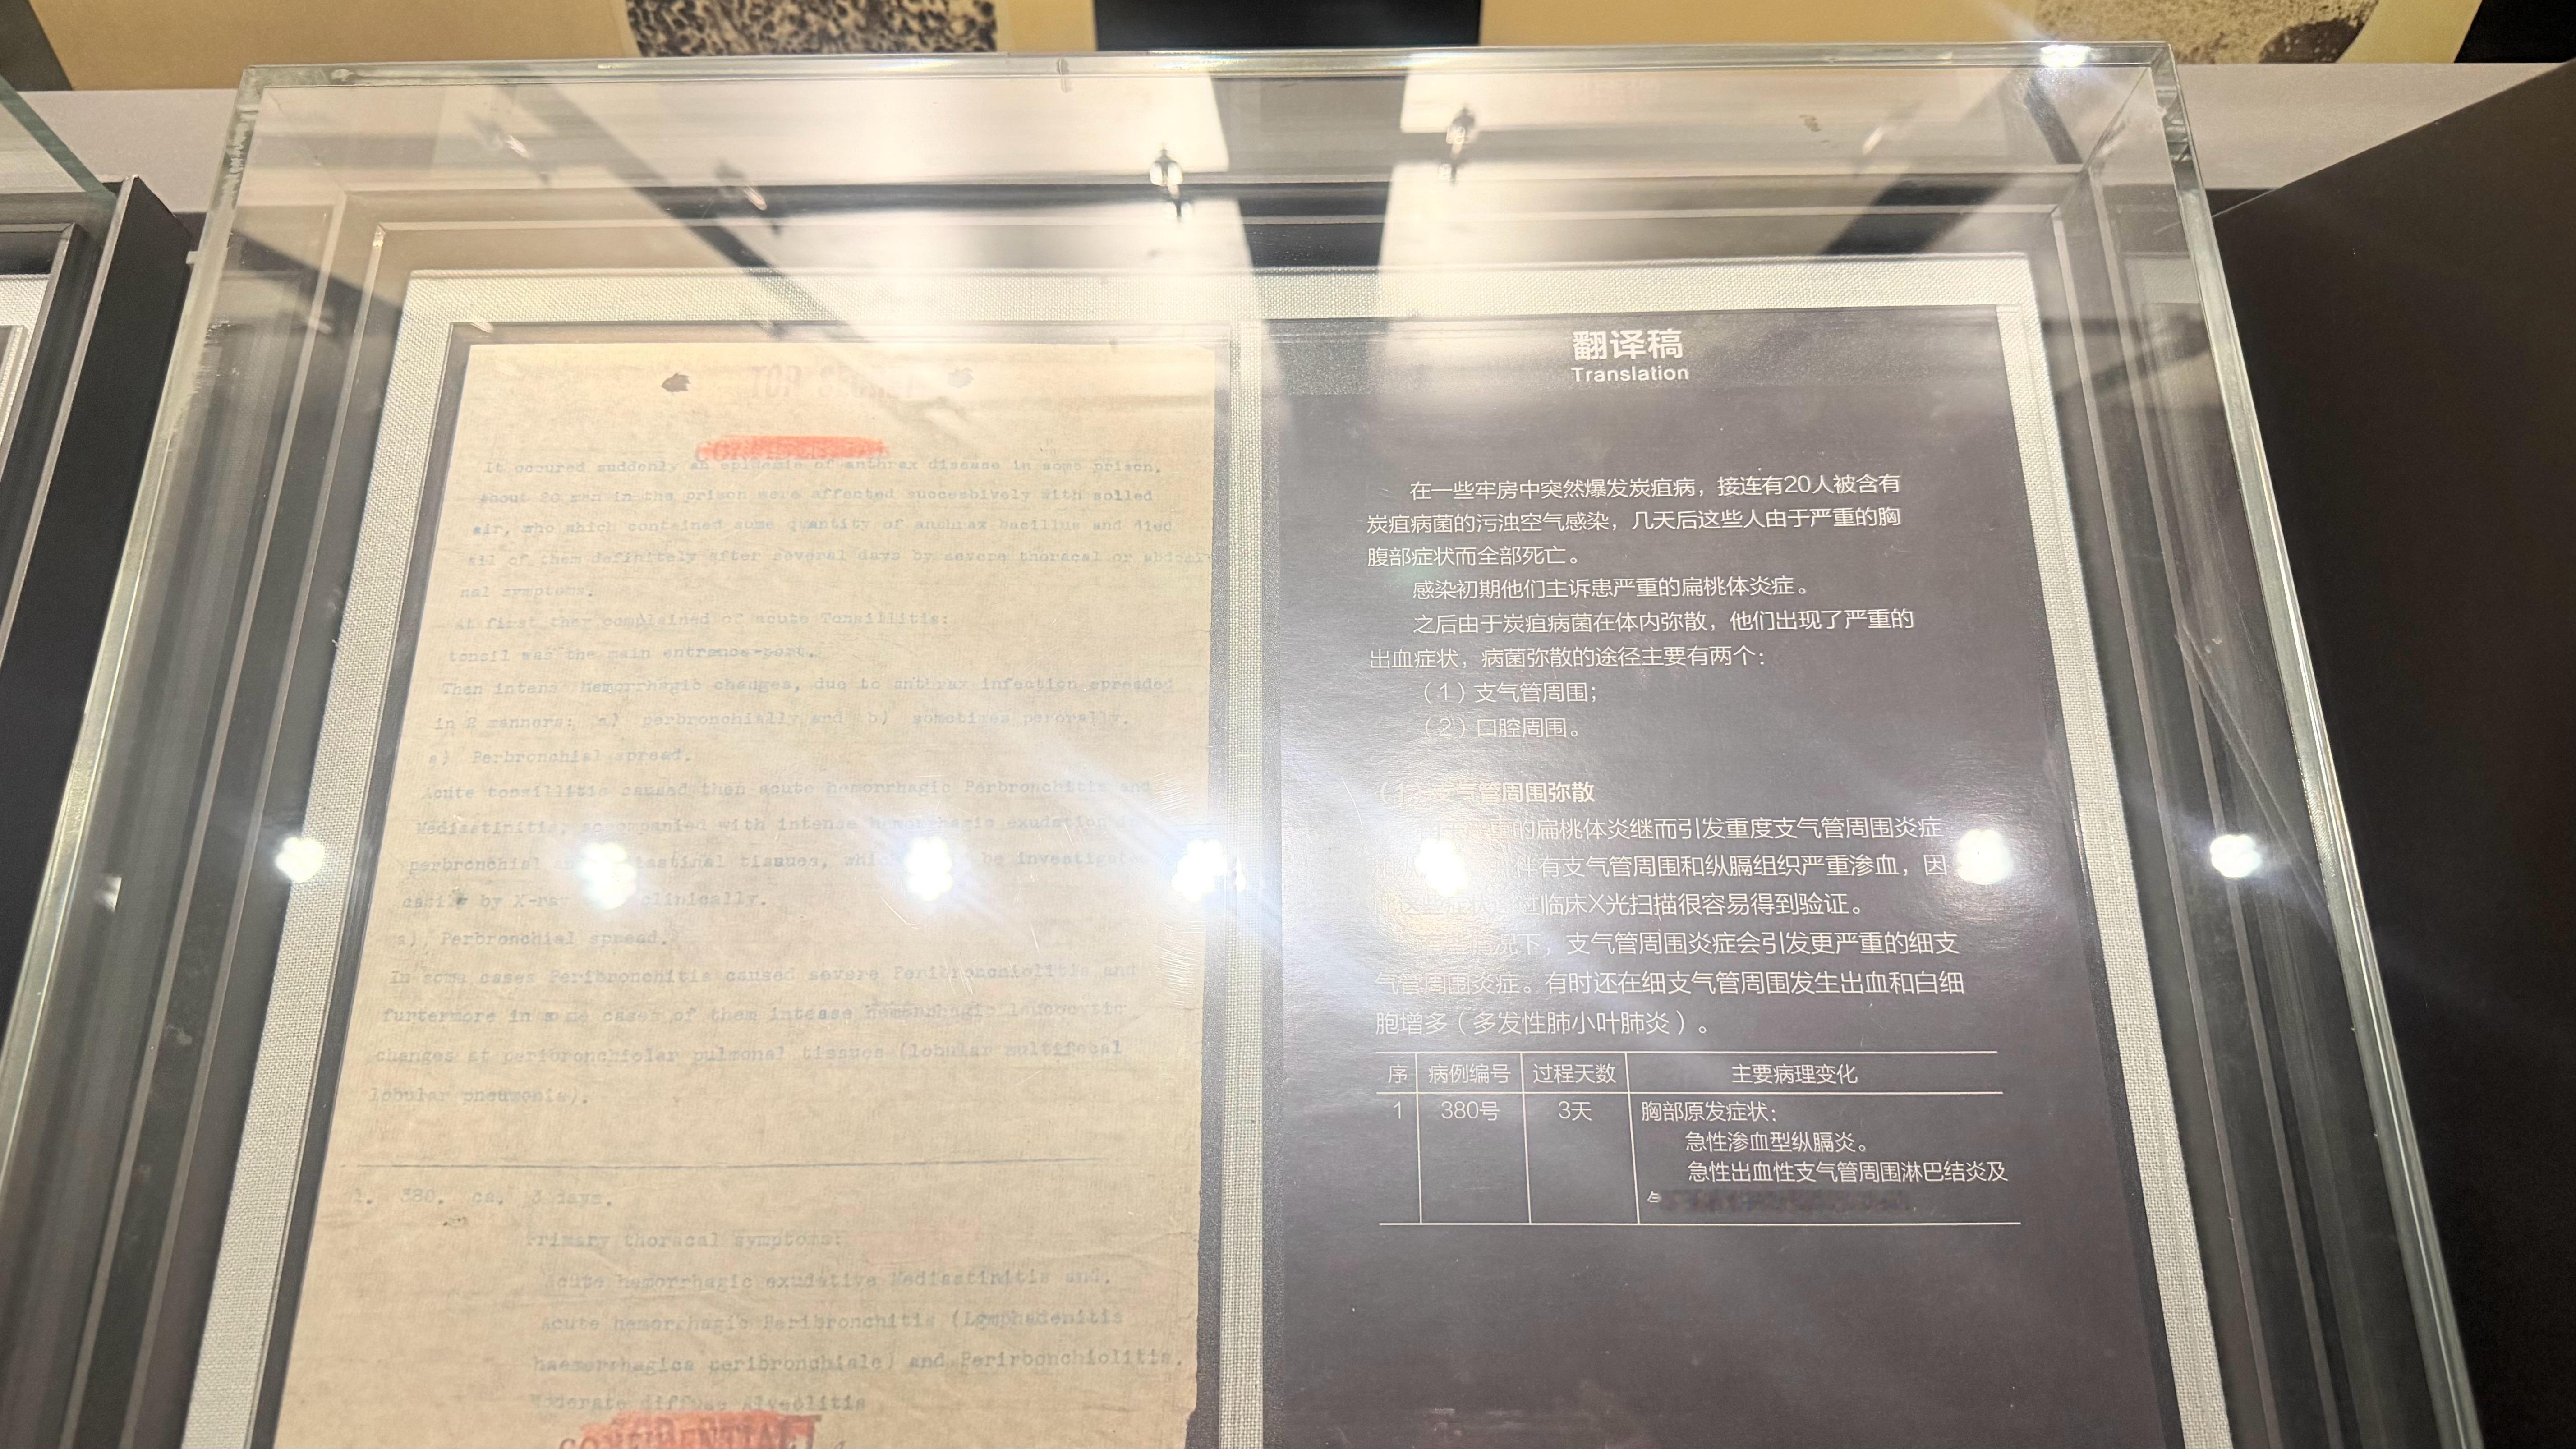 TOP
It occured suddenly an epidemic of anthrax disease in some prison.
About 20 men in the prison were affected succesbively with solled
air, who which contained some quantity of anthrax bacillus and died
all of them definitely after several days by severe thoracal or abdomi
nal symptoms.
At first ther complained of acute Tonsillitis:
tonsil was the main entrance-port.
Then intens hemorrhagic changes, due to anthrax infection spreaded
in 2 manners: a) perbronchially and b) sometimes perorally.
a) Perbronchial spread.
Acute tonsillitis caused then acute hemorrhagic Perbronchitis and
Mediastinitis; accompanied with intense hemorrhagic exudation
perbronchial tissues, be investigate
easily by X-ray clinically.
a) Perbronchial spread.
In some cases Peribronchitis caused severe Peribronchiolitis and
furtermore in some cases of them intease hemorrhagic leucocytic
changes at peribronchiolar pulmonal tissues (lobular multifocal
lobular pneumonia).
1. 380. ca. 3 days.
Primary thoracal symptoms:
Acute hemorrhagic exudative Mediastinitis and.
Acute hemorrhagic Peribronchitis (Lymphadenitis
haemorrhagica peribronchiale) and Perirbonchiolitis.
Moderate diffuse Alveolitis
CONFIDENTIAL
翻译稿
Translation
在一些牢房中突然爆发炭疽病，接连有20人被含有
炭疽病菌的污浊空气感染，几天后这些人由于严重的胸
腹部症状而全部死亡。
感染初期他们主诉患严重的扁桃体炎症。
之后由于炭疽病菌在体内弥散，他们出现了严重的
出血症状，病菌弥散的途径主要有两个：
（1）支气管周围；
（2）口腔周围。
气管周围弥散
的扁桃体炎继而引发重度支气管周围炎症
伴有支气管周围和纵膈组织严重渗血，因
此这些症状 过临床X光扫描很容易得到验证。
情况下，支气管周围炎症会引发更严重的细支
气管周围炎症。有时还在细支气管周围发生出血和白细
胞增多（多发性肺小叶肺炎）。
序 病例编号 过程天数 主要病理变化
1 380号 3天 胸部原发症状：
急性渗血型纵膈炎。
急性出血性支气管周围淋巴结炎及